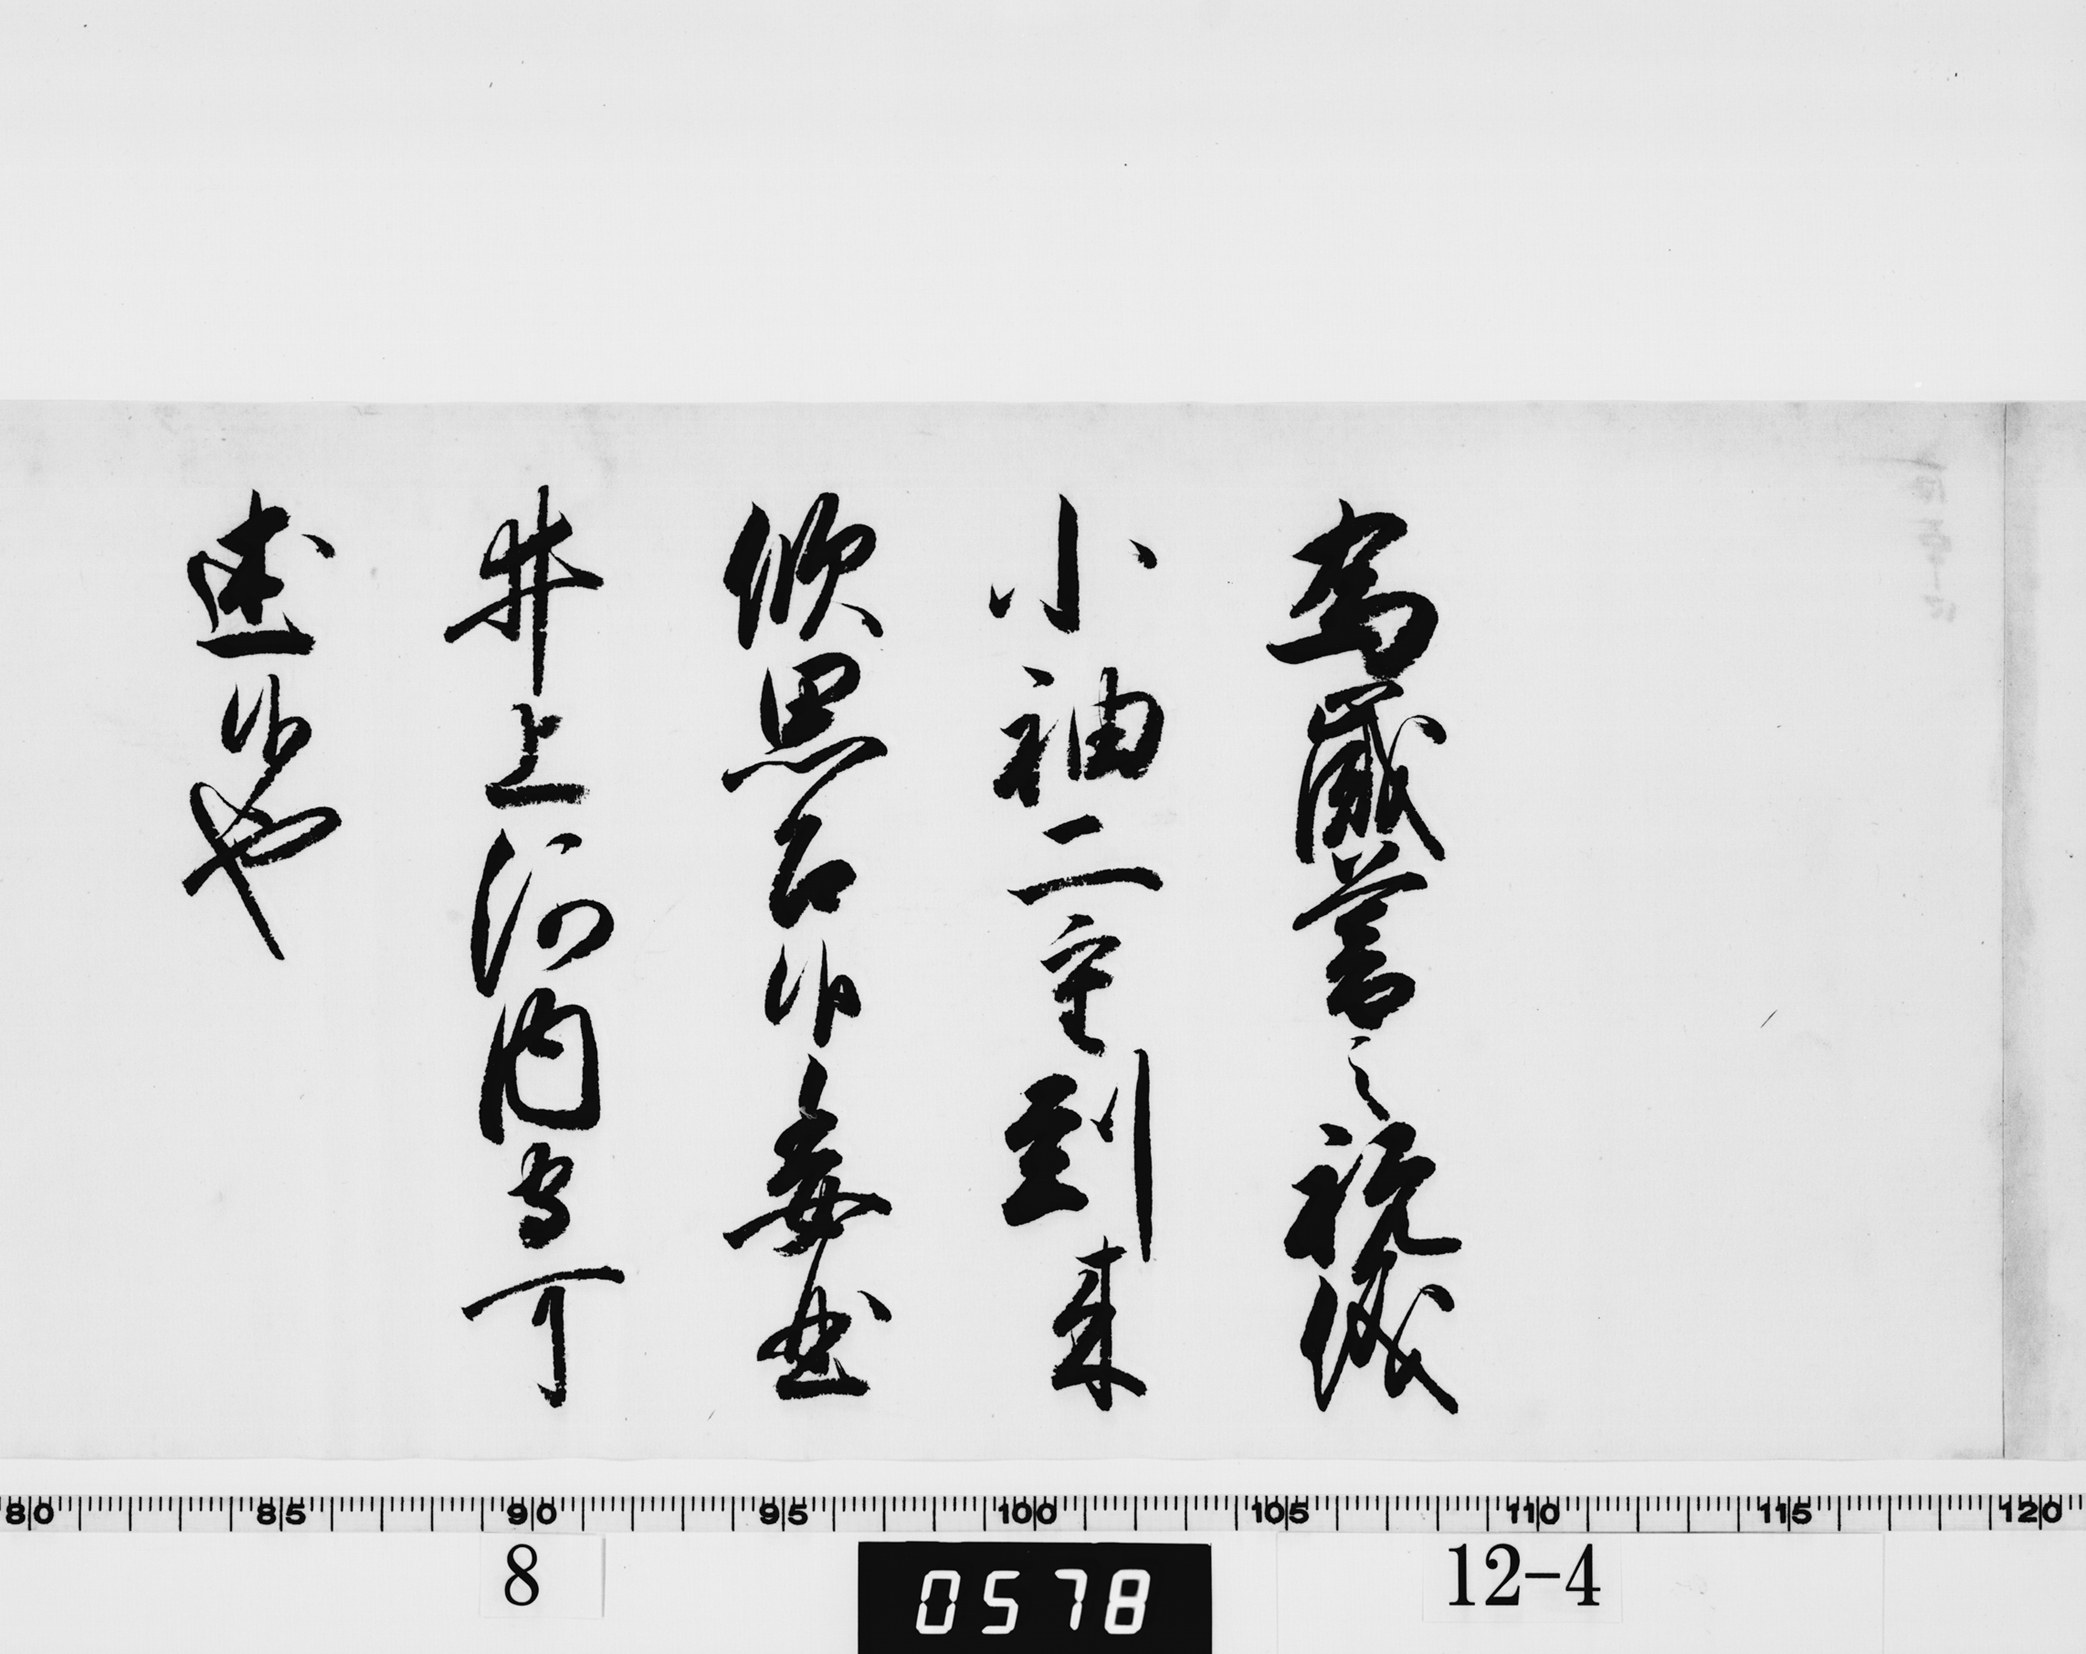 為歳暮之祝儀
小袖二重到来
欣思召候委曲
井上河内守可
述候也
80 85 90 95 100 105 110 115 120
8 0578 12-4